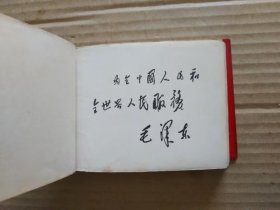 为全中國人民和
全世界人民服務
毛澤东